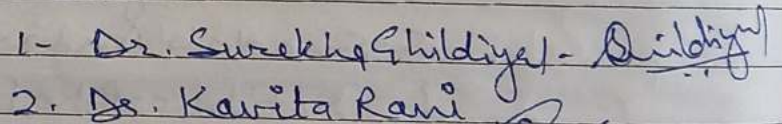 1- Dr. Surekha Ghildiyal - Ghildiyal
2. Dr. Kavita Rani